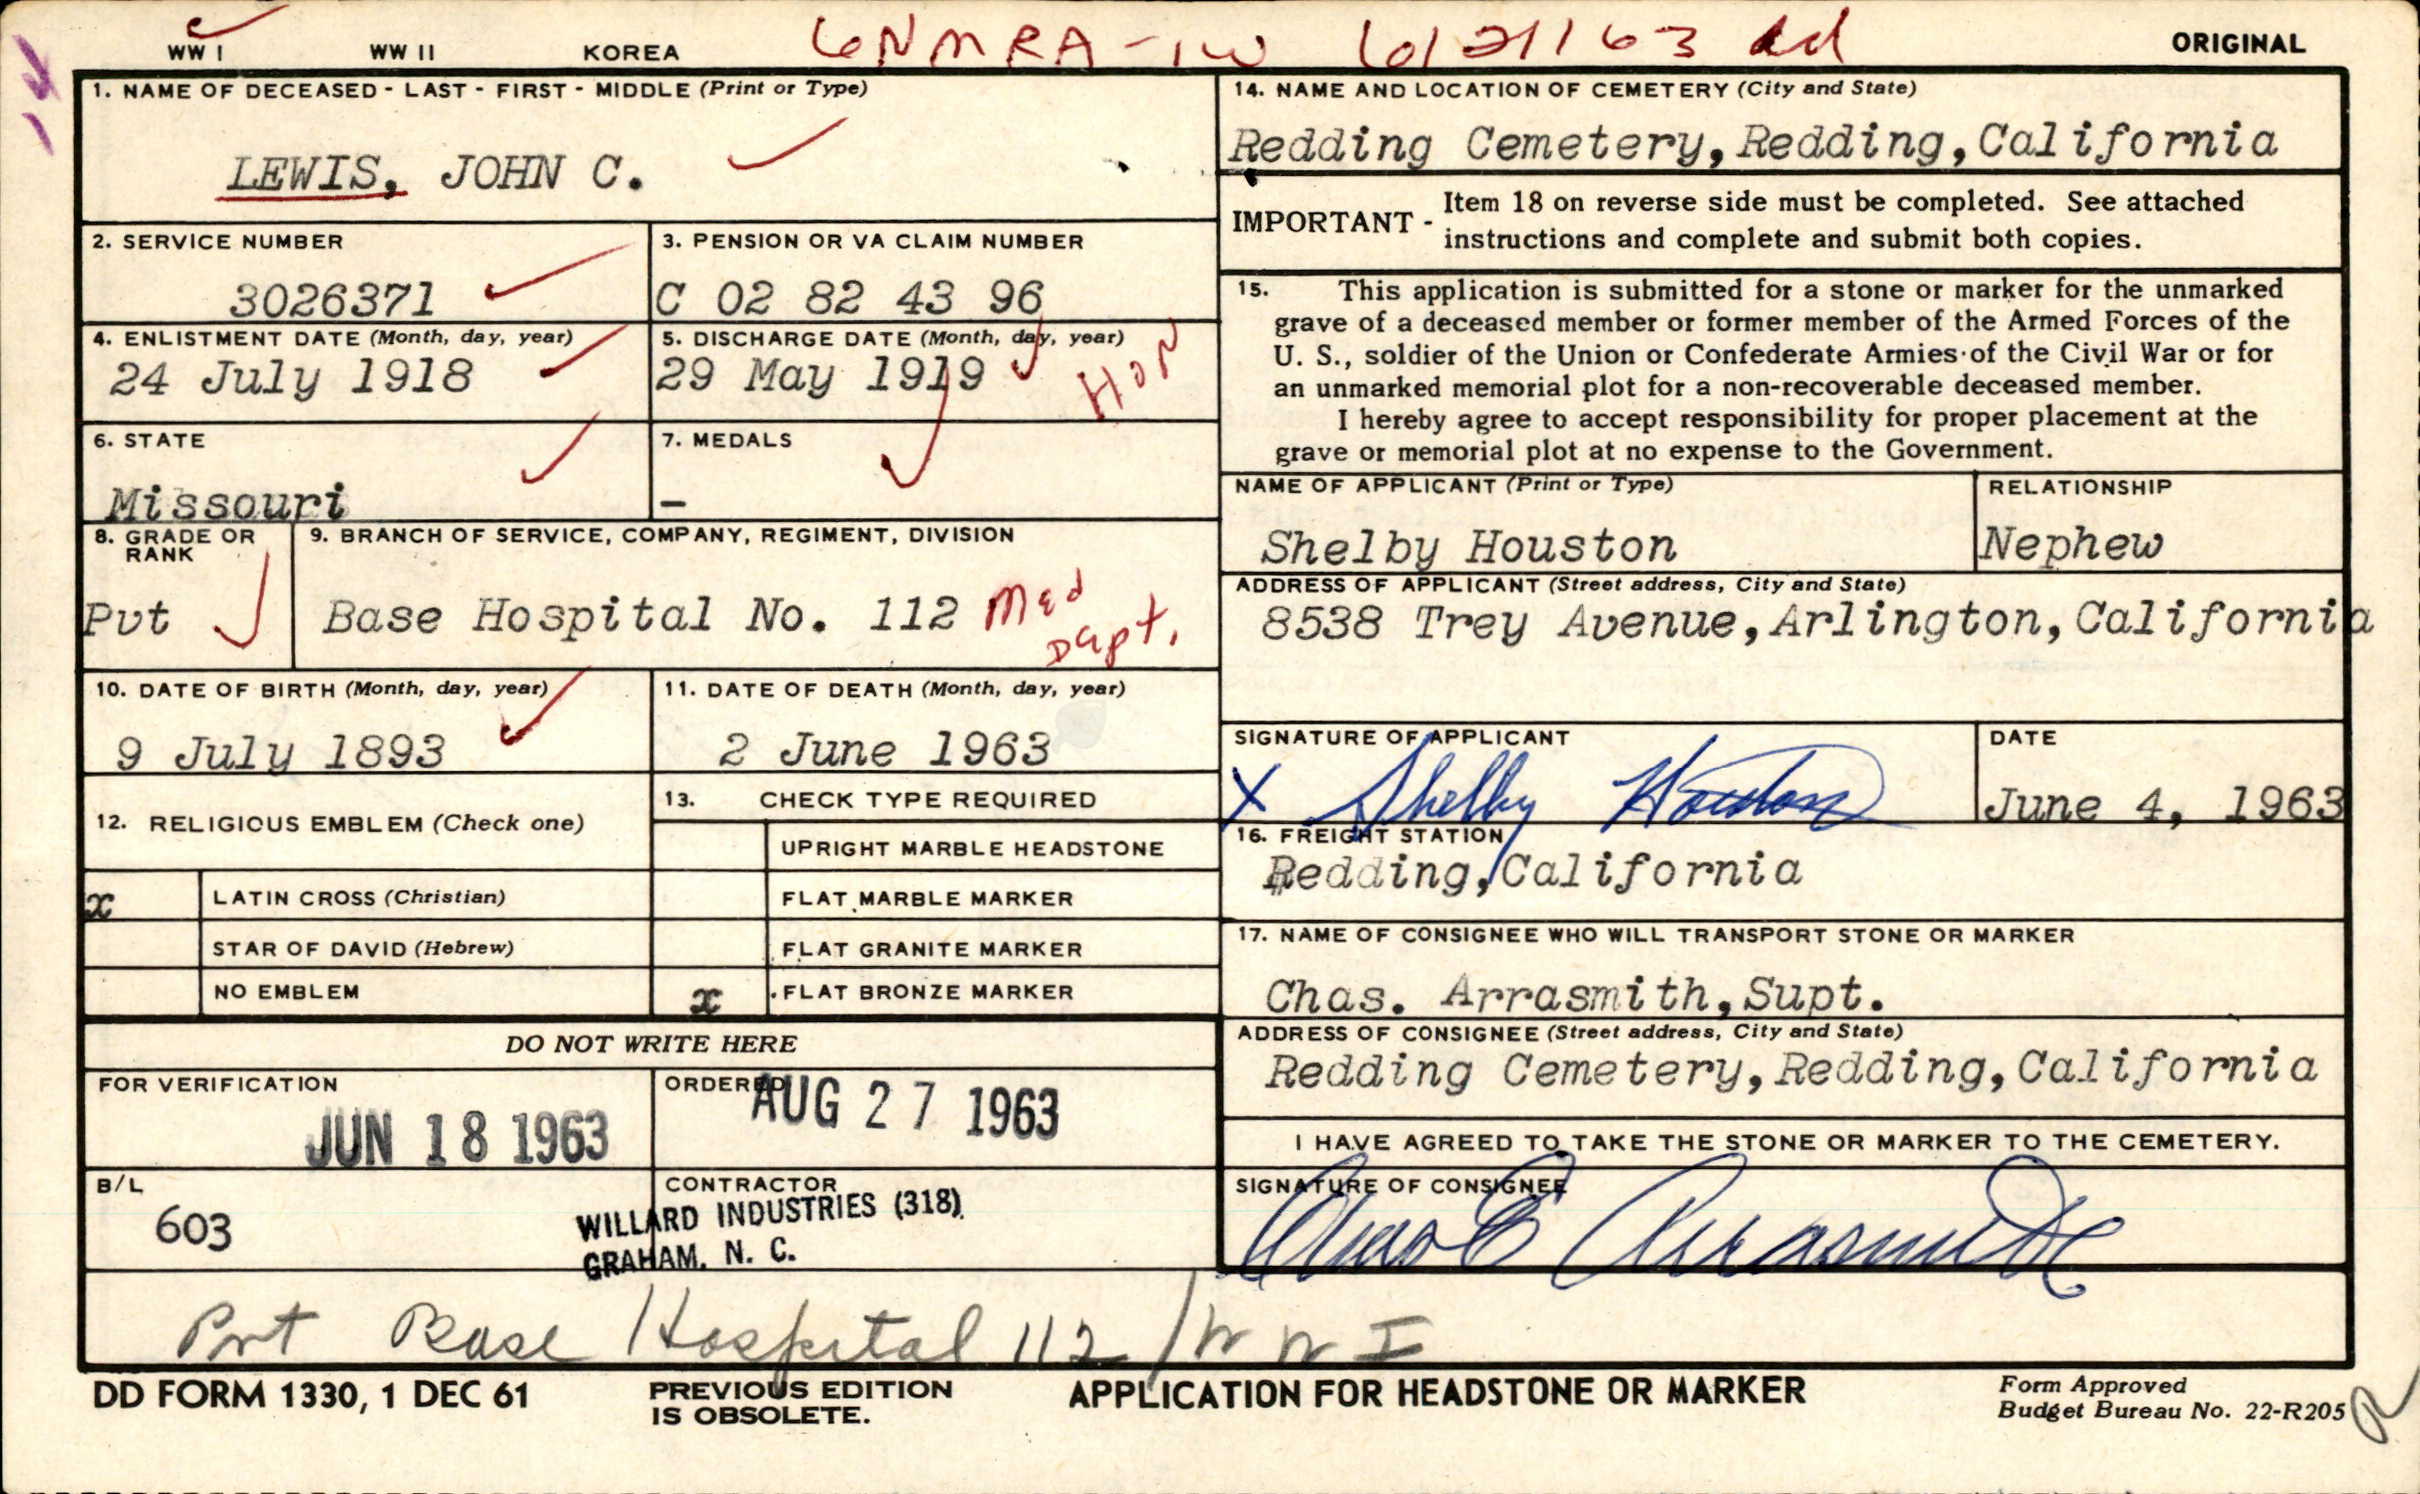 WW I WW II KOREA 6NMRA-1W 6/21/63 ORIGINAL
1. NAME OF DECEASED - LAST - FIRST - MIDDLE (Print or Type)
LEWIS, JOHN C.
2. SERVICE NUMBER
3026371
3. PENSION OR VA CLAIM NUMBER
C 02 82 43 96
4. ENLISTMENT DATE (Month, day, year)
24 July 1918
5. DISCHARGE DATE (Month, day, year)
29 May 1919 HON
6. STATE
Missouri
7. MEDALS
-
8. GRADE OR
RANK
Pvt
9. BRANCH OF SERVICE, COMPANY, REGIMENT, DIVISION
Base Hospital No. 112 Med
Dept.
10. DATE OF BIRTH (Month, day, year)
9 July 1893
11. DATE OF DEATH (Month, day, year)
2 June 1963
12. RELIGIOUS EMBLEM (Check one)
x LATIN CROSS (Christian)
STAR OF DAVID (Hebrew)
NO EMBLEM
13. CHECK TYPE REQUIRED
UPRIGHT MARBLE HEADSTONE
FLAT MARBLE MARKER
FLAT GRANITE MARKER
x FLAT BRONZE MARKER
DO NOT WRITE HERE
FOR VERIFICATION
JUN 18 1963
ORDERED
AUG 27 1963
B/L
603
CONTRACTOR
WILLARD INDUSTRIES (318)
GRAHAM, N. C.
14. NAME AND LOCATION OF CEMETERY (City and State)
Redding Cemetery,Redding,California
IMPORTANT - Item 18 on reverse side must be completed. See attached
instructions and complete and submit both copies.
15. This application is submitted for a stone or marker for the unmarked
grave of a deceased member or former member of the Armed Forces of the
U. S., soldier of the Union or Confederate Armies of the Civil War or for
an unmarked memorial plot for a non-recoverable deceased member.
I hereby agree to accept responsibility for proper placement at the
grave or memorial plot at no expense to the Government.
NAME OF APPLICANT (Print or Type)
Shelby Houston
RELATIONSHIP
Nephew
ADDRESS OF APPLICANT (Street address, City and State)
8538 Trey Avenue,Arlington,California
SIGNATURE OF APPLICANT
X Shelby Houston
DATE
June 4, 1963
16. FREIGHT STATION
Redding,California
17. NAME OF CONSIGNEE WHO WILL TRANSPORT STONE OR MARKER
Chas. Arrasmith,Supt.
ADDRESS OF CONSIGNEE (Street address, City and State)
Redding Cemetery,Redding,California
I HAVE AGREED TO TAKE THE STONE OR MARKER TO THE CEMETERY.
SIGNATURE OF CONSIGNEE
Chas E Arrasmith
Pvt Base Hospital 112 / W W I
DD FORM 1330, 1 DEC 61
PREVIOUS EDITION
IS OBSOLETE.
APPLICATION FOR HEADSTONE OR MARKER
Form Approved
Budget Bureau No. 22-R205